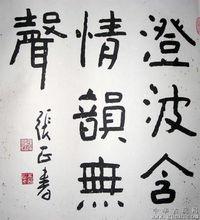 澄波含
情韻無
聲
張正書